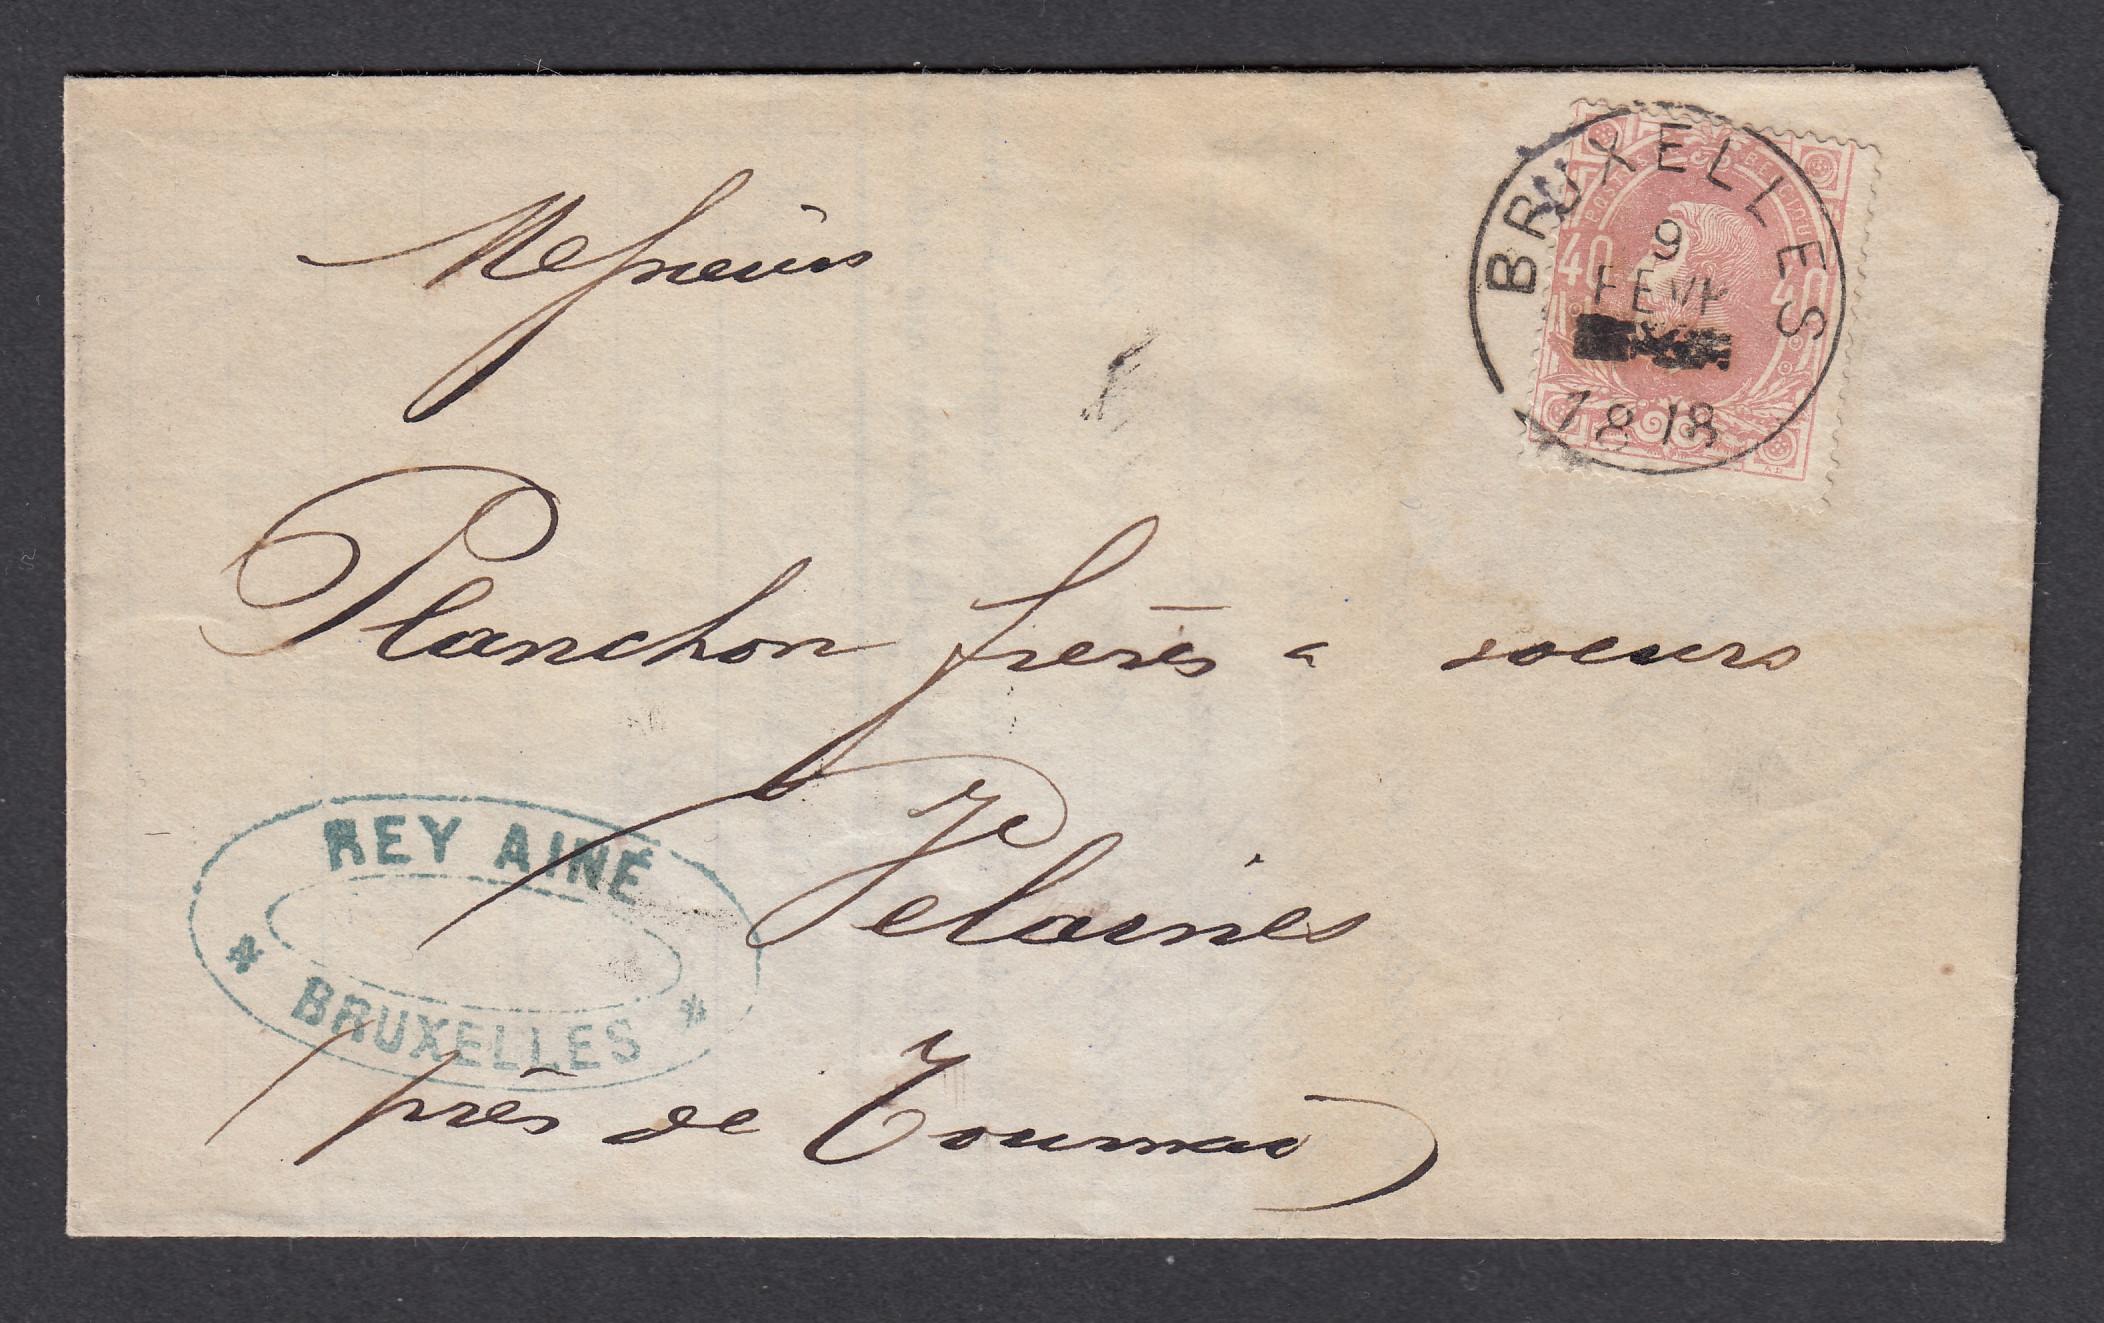 Messieurs
Planchon freres & soeurs
Velaines
près de Tournai
REY AINÉ
BRUXELLES
BRUXELLES
9
FEVR
1878
POSTES BELGIQUE
40 40